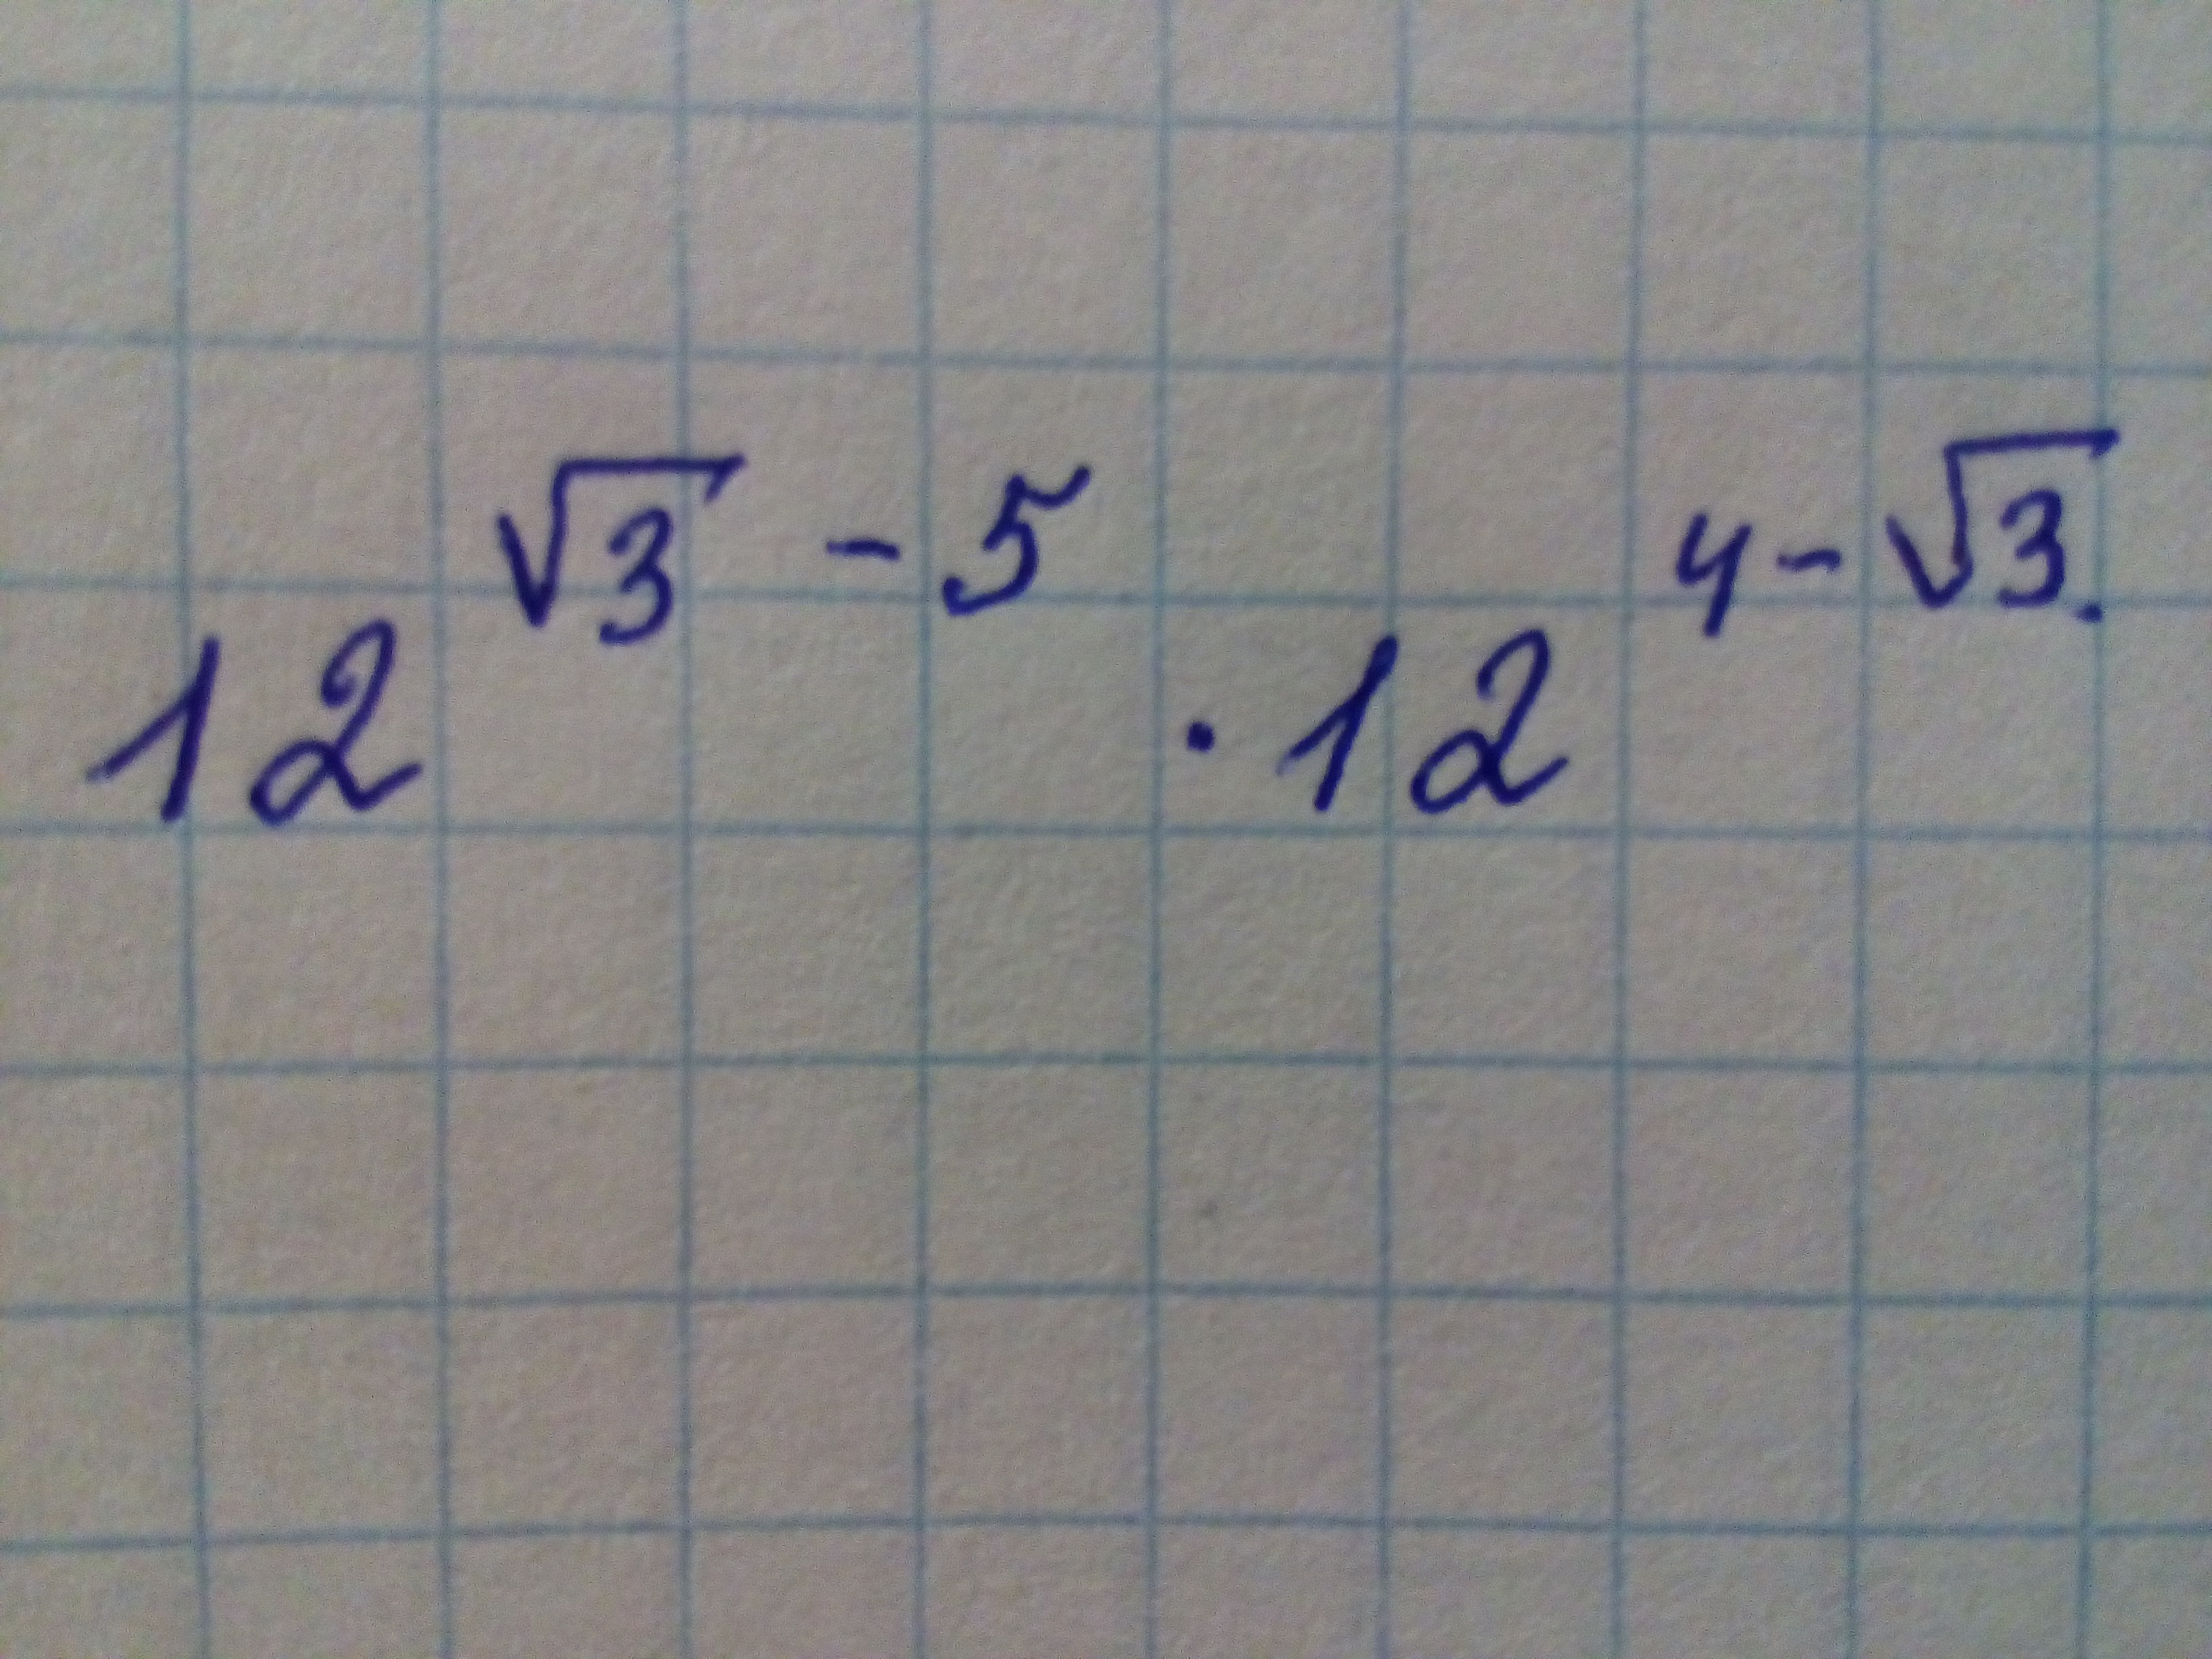 12^{√3 - 5} · 12^{4 - √3}.